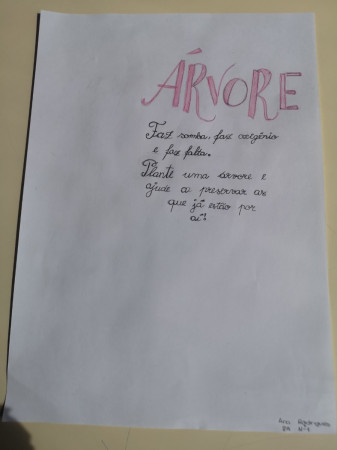 ÁRVORE
Faz somba, faz oxigênio
e faz falta.
Plante uma árvore e
ajude a preservar as
que já estão por
aí!
Ana Rodrigues
8A Nº1